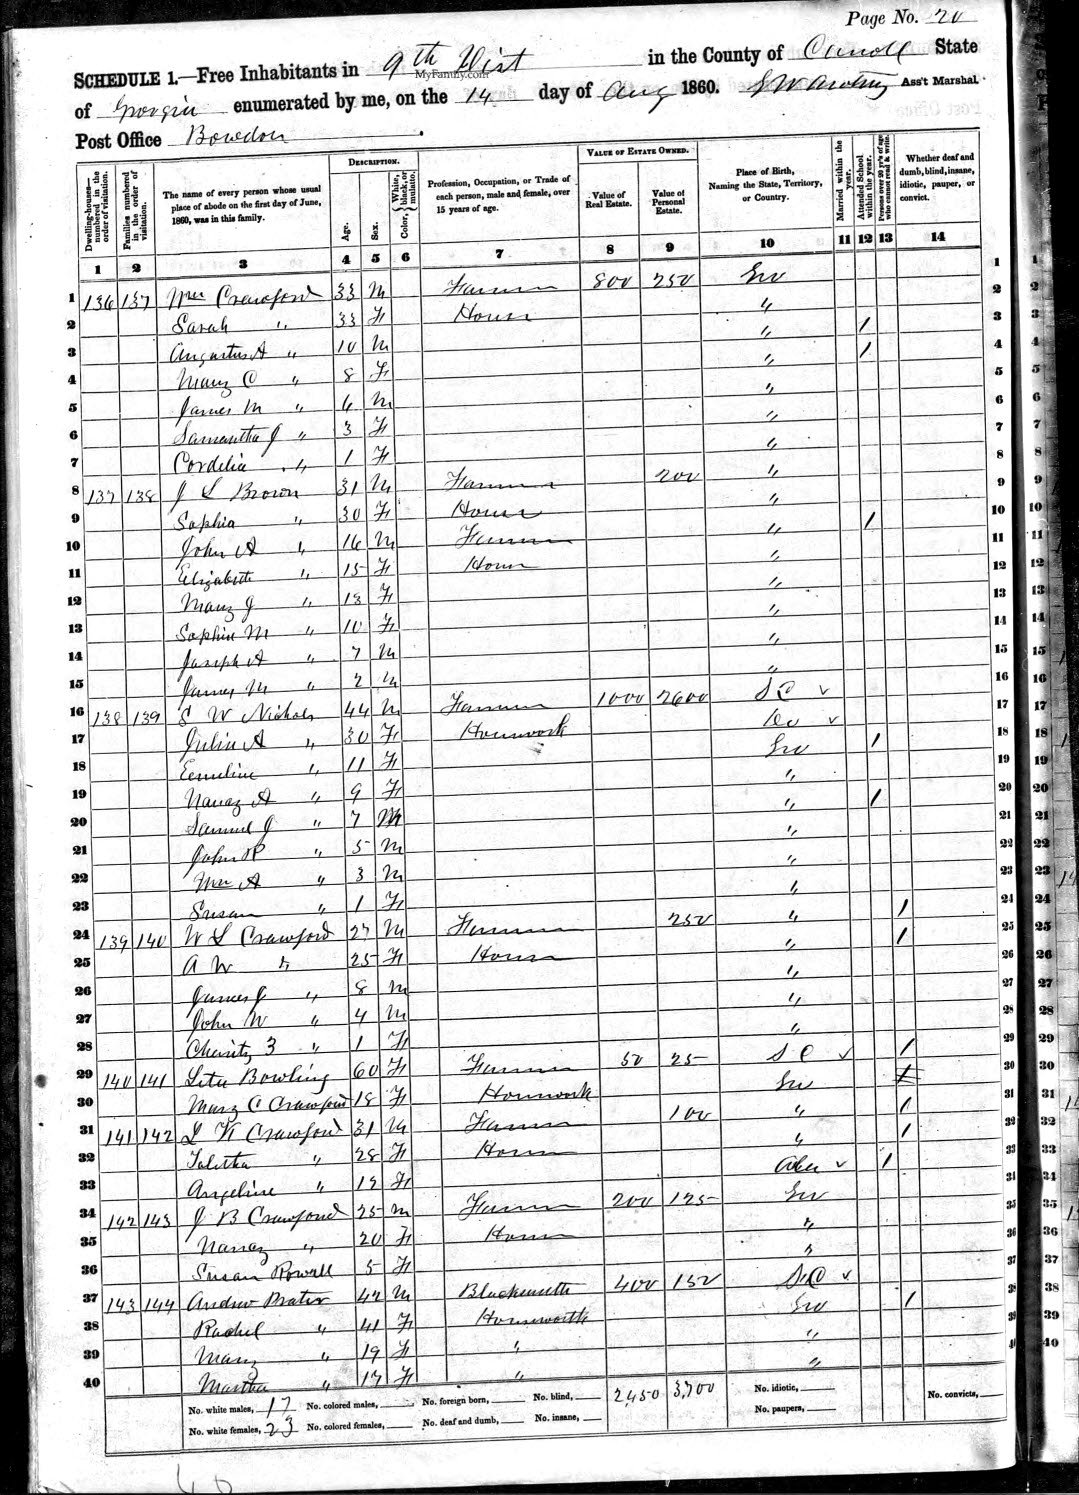 Page No. 20
SCHEDULE 1.—Free Inhabitants in 9th Dist in the County of Carroll State
MyFamily.com
of Georgia enumerated by me, on the 14 day of Aug 1860. Ass't Marshal
Post Office Bowdon
Dwelling-houses—numbered in the order of visitation.
Families numbered in the order of visitation.
The name of every person whose usual place of abode on the first day of June, 1860, was in this family.
DESCRIPTION.
Age.
Sex.
Color, White, black, or mulatto.
Profession, Occupation, or Trade of each person, male and female, over 15 years of age.
VALUE OF ESTATE OWNED.
Value of Real Estate.
Value of Personal Estate.
Place of Birth, Naming the State, Territory, or Country.
Married within the year.
Attended School within the year.
Persons over 20 y'rs of age who cannot read & write.
Whether deaf and dumb, blind, insane, idiotic, pauper, or convict.
1 2 3 4 5 6 7 8 9 10 11 12 13 14
1 136 137 Wm Crawford 33 M Farmer 800 250 Geo
2 Sarah " 33 F House "
3 Augustus A " 10 M " /
4 Mary C " 8 F " /
5 James M " 6 M "
6 Samantha J " 3 F "
7 Cordelia " 1 F "
8 137 138 J L Brown 31 M Farmer 200 "
9 Sophia " 30 F House "
10 John A " 16 M Farmer " /
11 Elizabeth " 15 F House "
12 Mary J " 13 F "
13 Sophia M " 10 F "
14 Joseph A " 7 M "
15 James M " 2 M "
16 138 139 S W Nichols 44 M Farmer 1000 2600 S C ✓
17 Julia A " 30 F Housework Do ✓
18 Emeline " 11 F Geo /
19 Nancy A " 9 F "
20 Samuel J " 7 M " /
21 John P " 5 M "
22 Wm A " 3 M "
23 Susan " 1 F "
24 139 140 W L Crawford 27 M Farmer 250 " /
25 A W " 25 F House " /
26 James J " 8 M "
27 John W " 4 M "
28 Charity Z " 1 F "
29 140 141 Leta Bowling 60 F Farmer 50 25 S C ✓ /
30 Mary C Crawford 18 F Housework Geo
31 141 142 Crawford 31 M Farmer 100 " /
32 Talitha " 28 F House " /
33 Angeline " 12 F Ala ✓ /
34 142 143 J B Crawford 25 M Farmer 200 125 Geo
35 Nancy " 20 F House "
36 Susan Rowell 5 F "
37 143 144 Andrew Prater 42 M Blacksmith 400 150 S C ✓
38 Rachel " 41 F Housework Geo /
39 Mary " 19 F " "
40 Martha " 17 F " "
No. white males, 17 No. colored males, No. foreign born, No. blind, 2450 3,700 No. idiotic, No. convicts,
No. white females, 23 No. colored females, No. deaf and dumb, No. insane, No. paupers,